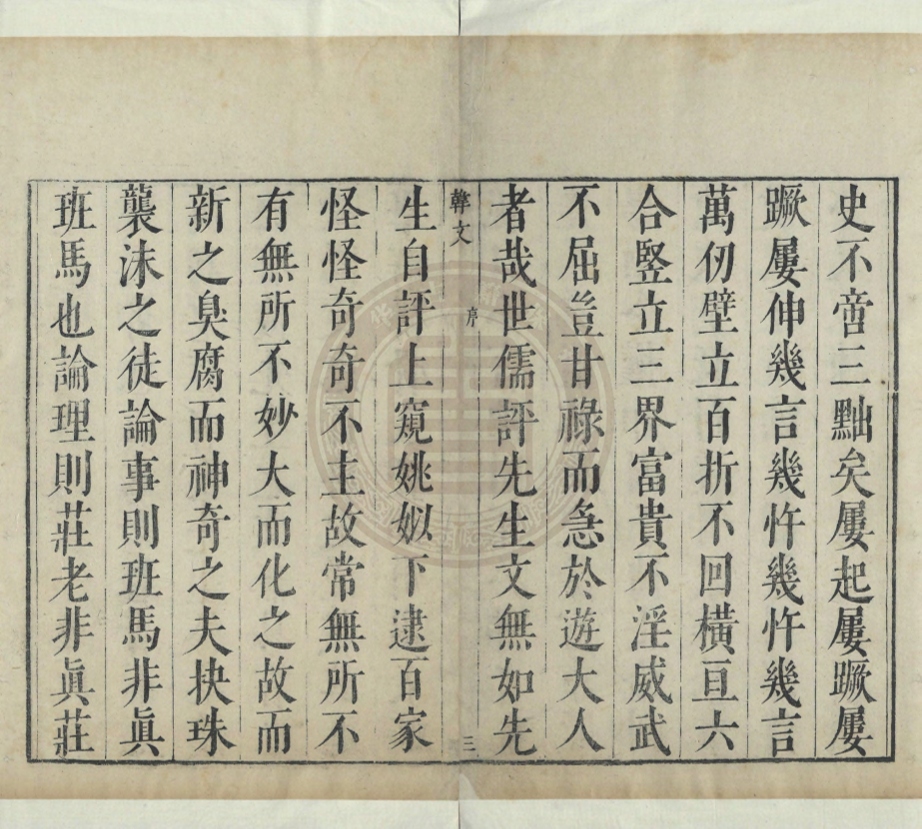 史不啻三黜矣屢起屢蹶屢
蹶屢伸幾言幾忤幾忤幾言
萬仞壁立百折不回橫亘六
合竪立三界富貴不淫威武
不屈豈甘祿而急於遊大人
者哉世儒評先生文無如先
韓文 序 三
生自評上窺姚姒下逮百家
怪怪奇奇不主故常無所不
有無所不妙大而化之故而
新之臭腐而神奇之夫抉珠
襲沫之徒論事則班馬非眞
班馬也論理則莊老非眞莊